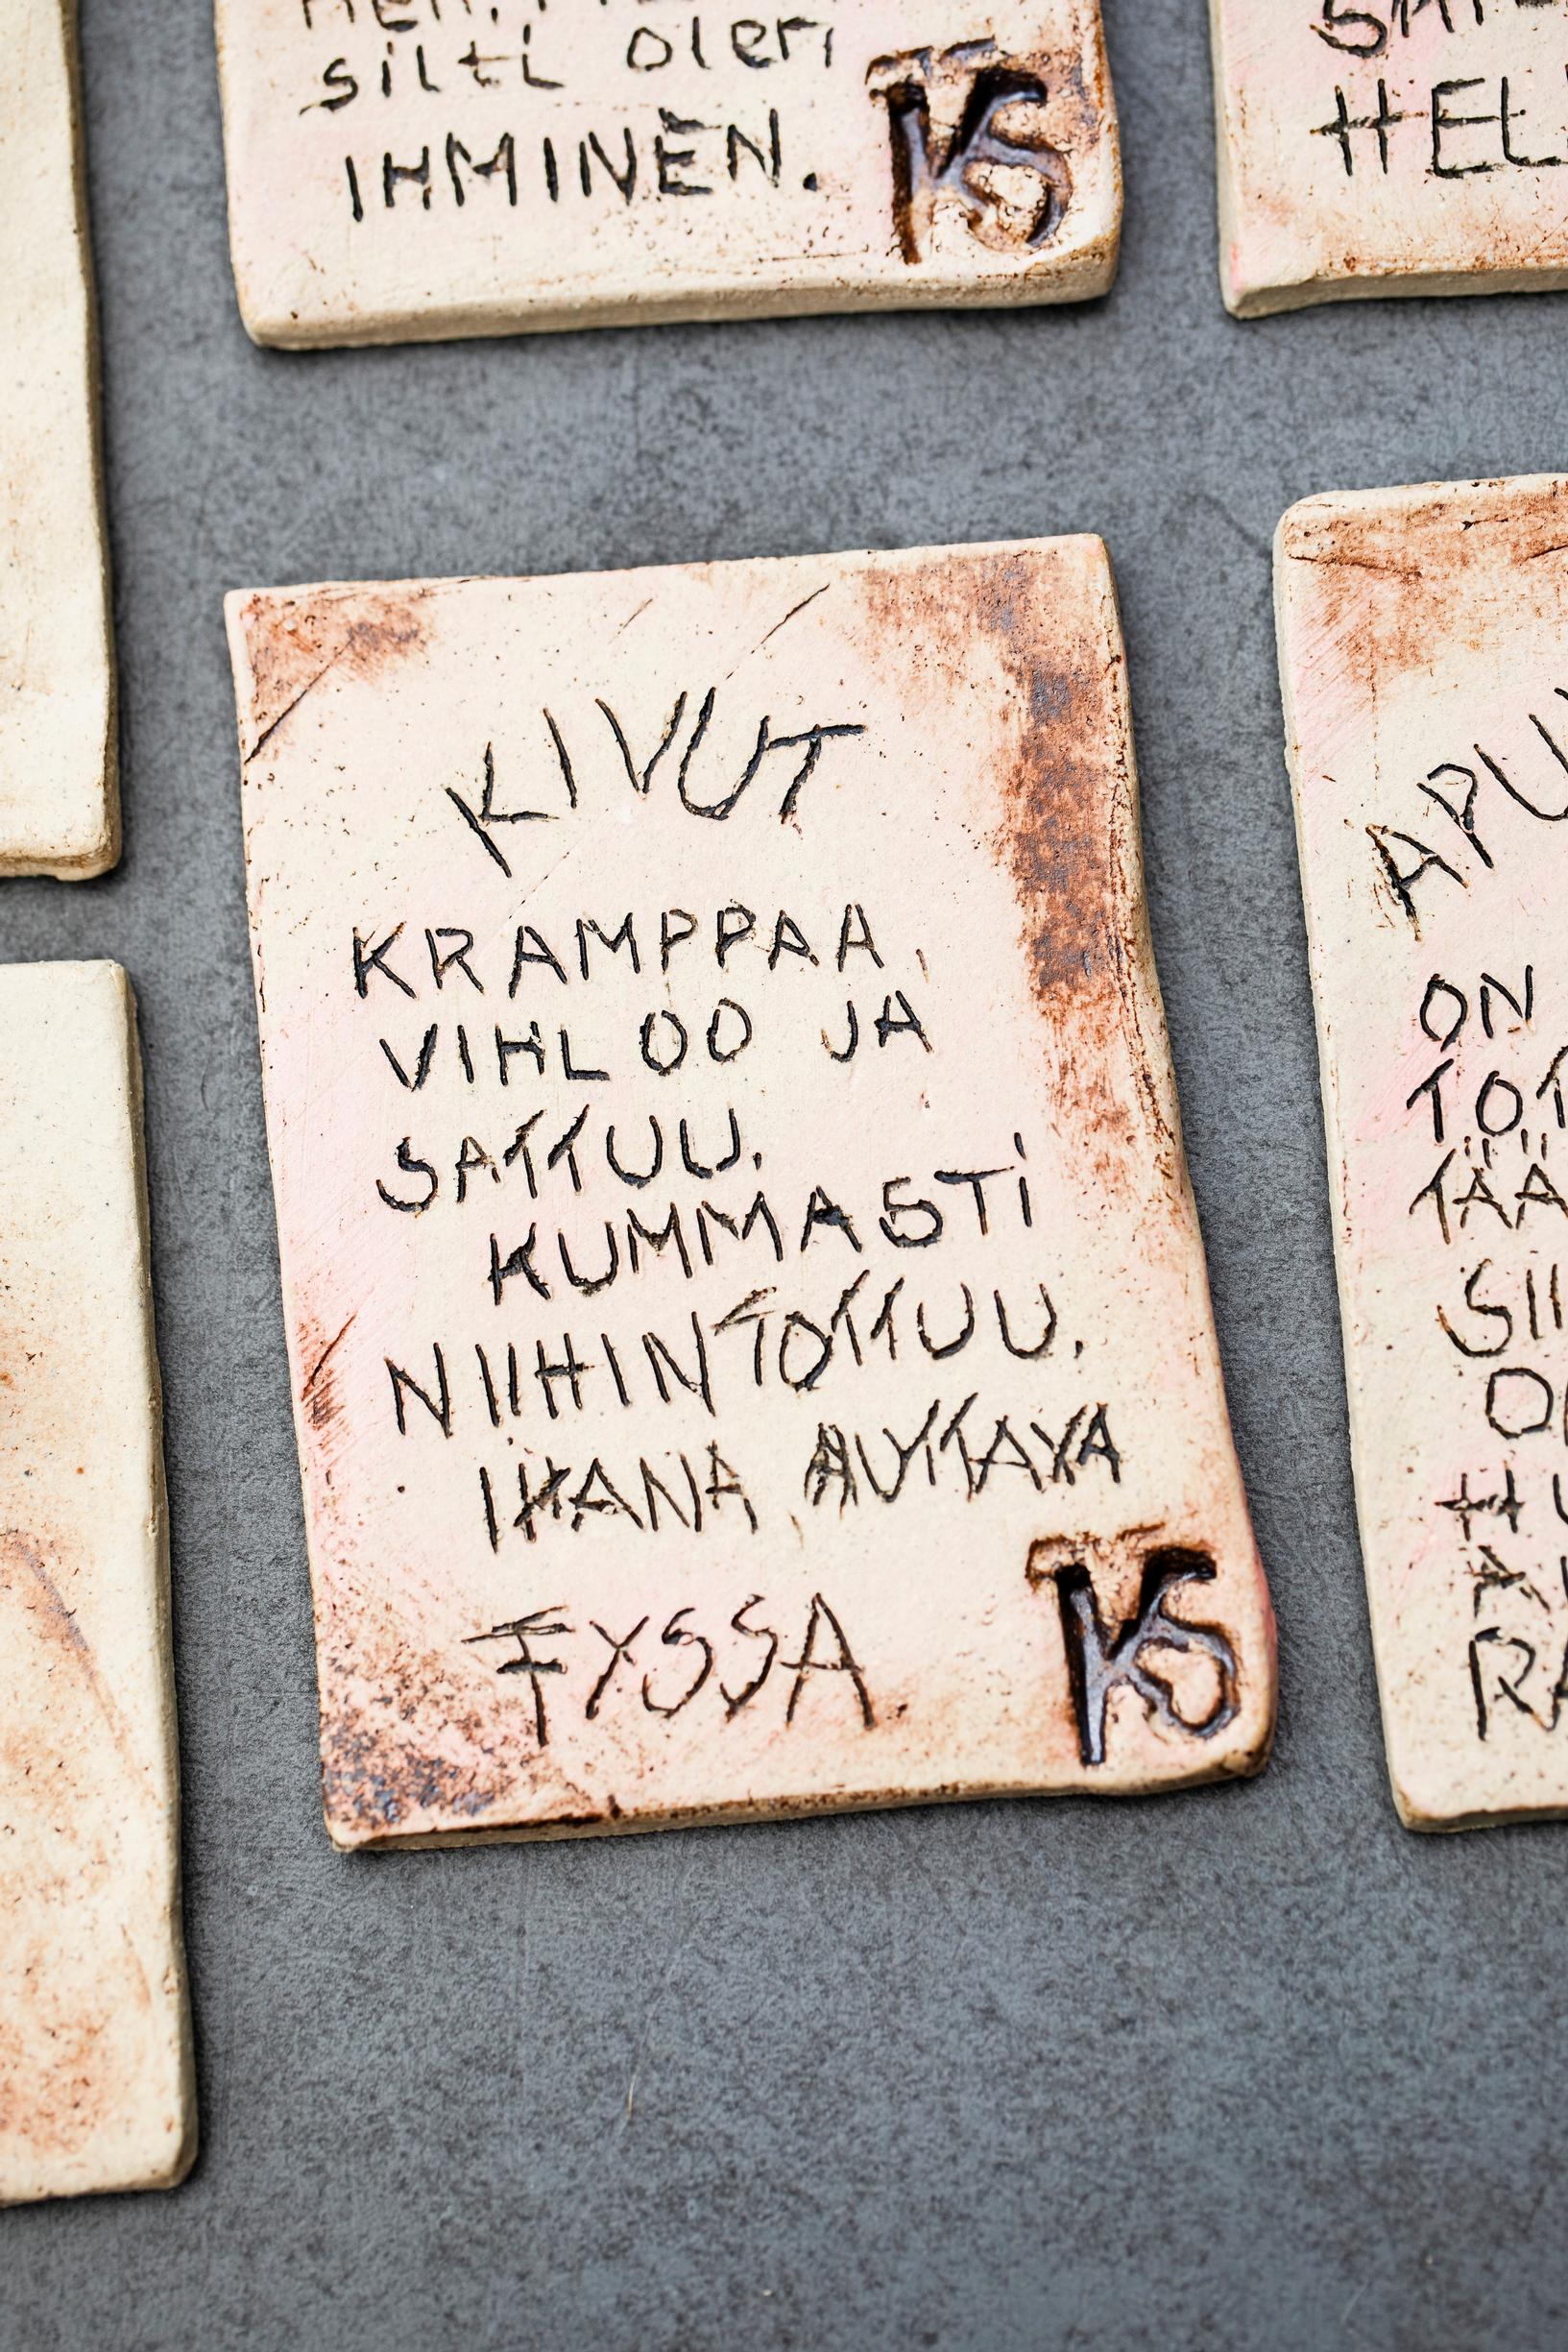 silti olen
IHMINEN.
KS
HEL
KIVUT
KRAMPPAA,
VIHLOO JA
SATTUU.
KUMMASTI
NIIHIN TOTTUU.
IHANA, AUTTAVA
FYSSA
KS
APU
ON
TOT
TÄÄ
SII